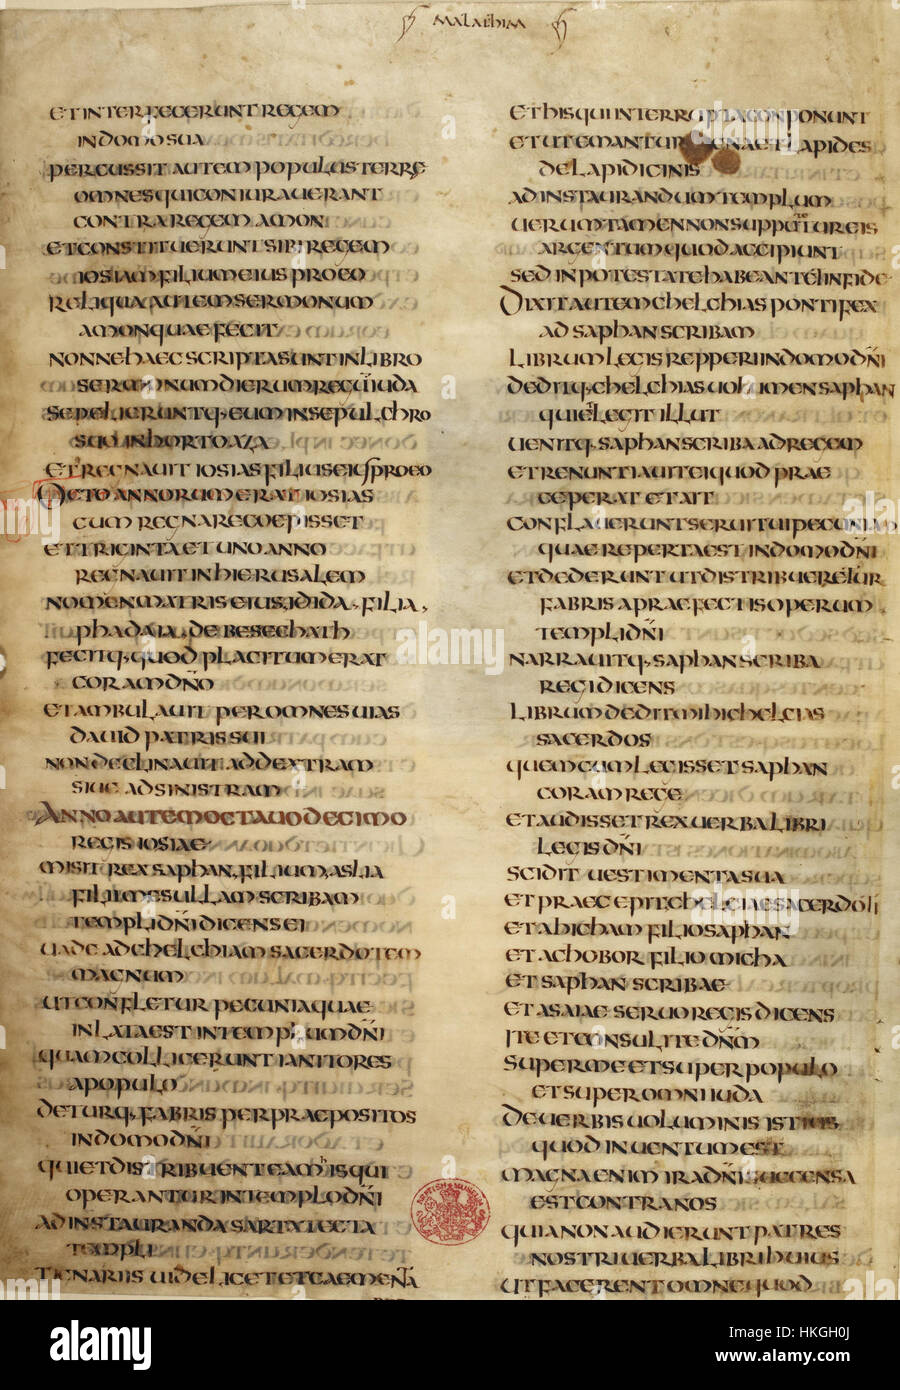 MALACHIM
ET INTERFECERUNT REGEM
IN DOMO SUA
PERCUSSIT AUTEM POPULUS TERRE
OMNES QUI CONIURAUERANT
CONTRA REGEM AMON
ET CONSTITUERUNT SIBI REGEM
IOSIAM FILIUM EIUS PRO EO
RELIQUA AUTEM SERMONUM
AMON QUAE FECIT
NONNE HAEC SCRIPTA SUNT IN LIBRO
SERMONUM DIERUM REGŪ IUDA
SEPELIERUNTQ· EUM IN SEPULCHRO
SUO IN HORTO AZA
ET REGNAUIT IOSIAS FILIUS EIUS PRO EO
OCTO ANNORUM ERAT IOSIAS
CUM REGNARE COEPISSET
ET TRIGINTA ET UNO ANNO
REGNAUIT IN HIERUSALEM
NOMEN MATRIS EIUS, IDIDA, FILIA,
PHADAIA, DE BESECHATH
FECITQ· QUOD PLACITUM ERAT
CORAM DÑO
ET AMBULAUIT PER OMNES UIAS
DAUID PATRIS SUI
NON DECLINAUIT AD DEXTRAM
SIUE AD SINISTRAM
ANNO AUTEM OCTAUO DECIMO
REGIS IOSIAE
MISIT REX SAPHAN, FILIUM ASLIA
FILII MESULLAM SCRIBAM
TEMPLI DÑI DICENS EI
UADE AD CHELCHIAM SACERDOTEM
MAGNUM
UT CONFLETUR PECUNIA QUAE
INLATA EST IN TEMPLUM DÑI
QUAM COLLIGERUNT IANITORES
A POPULO
DETURQ· FABRIS PER PRAEPOSITOS
IN DOMO DÑI
QUI ET DISTRIBUENT EAM HIS QUI
OPERANTUR IN TEMPLO DÑI
AD INSTAURANDA SARTA TECTA
TEMPLI
TIGNARIIS UIDELICET ET CAEMENTA
ET HIS QUI INTERRUPTA CONPONUNT
ET UT EMANTUR LIGNA ET LAPIDES
DE LAPIDICINIS
AD INSTAURANDUM TEMPLUM
UERUM TAMEN NON SUPPUTETUR EIS
ARGENTUM QUOD ACCIPIUNT
SED IN POTESTATE HABEANT ET IN FIDE
DIXIT AUTEM CHELCHIAS PONTIFEX
AD SAPHAN SCRIBAM
LIBRUM LEGIS REPPERI IN DOMO DÑI
DEDITQ· CHELCHIAS UOLUMEN SAPHAN
QUI ET LEGIT ILLUT
UENITQ· SAPHAN SCRIBA AD REGEM
ET RENUNTIAUIT EI QUOD PRAE
CEPERAT ET AIT
CONFLAUERUNT SERUI TUI PECUNIAM
QUAE REPERTA EST IN DOMO DÑI
ET DEDERUNT UT DISTRIBUERETUR
FABRIS A PRAEFECTIS OPERUM
TEMPLI DÑI
NARRAUITQ· SAPHAN SCRIBA
REGI DICENS
LIBRUM DEDIT MIHI CHELCIAS
SACERDOS
QUEM CUM LEGISSET SAPHAN
CORAM REGE
ET AUDISSET REX UERBA LIBRI
LEGIS DÑI
SCIDIT UESTIMENTA SUA
ET PRAECEPIT CHELCIAE SACERDOTI
ET AHICHAM FILIO SAPHAN
ET ACHOBOR FILIO MICHA
ET SAPHAN SCRIBAE
ET ASAIAE SERUO REGIS DICENS
ITE ET CONSULITE DÑM
SUPER ME ET SUPER POPULO
ET SUPER OMNI IUDA
DE UERBIS UOLUMINIS ISTIUS
QUOD INUENTUM EST
MAGNA ENIM IRA DÑI SUCCENSA
EST CONTRA NOS
QUIA NON AUDIERUNT PATRES
NOSTRI UERBA LIBRI HUIUS
UT FACERENT OMNE QUOD
BRITISH MUSEUM
alamy
Image ID: HKGH0J
www.alamy.com